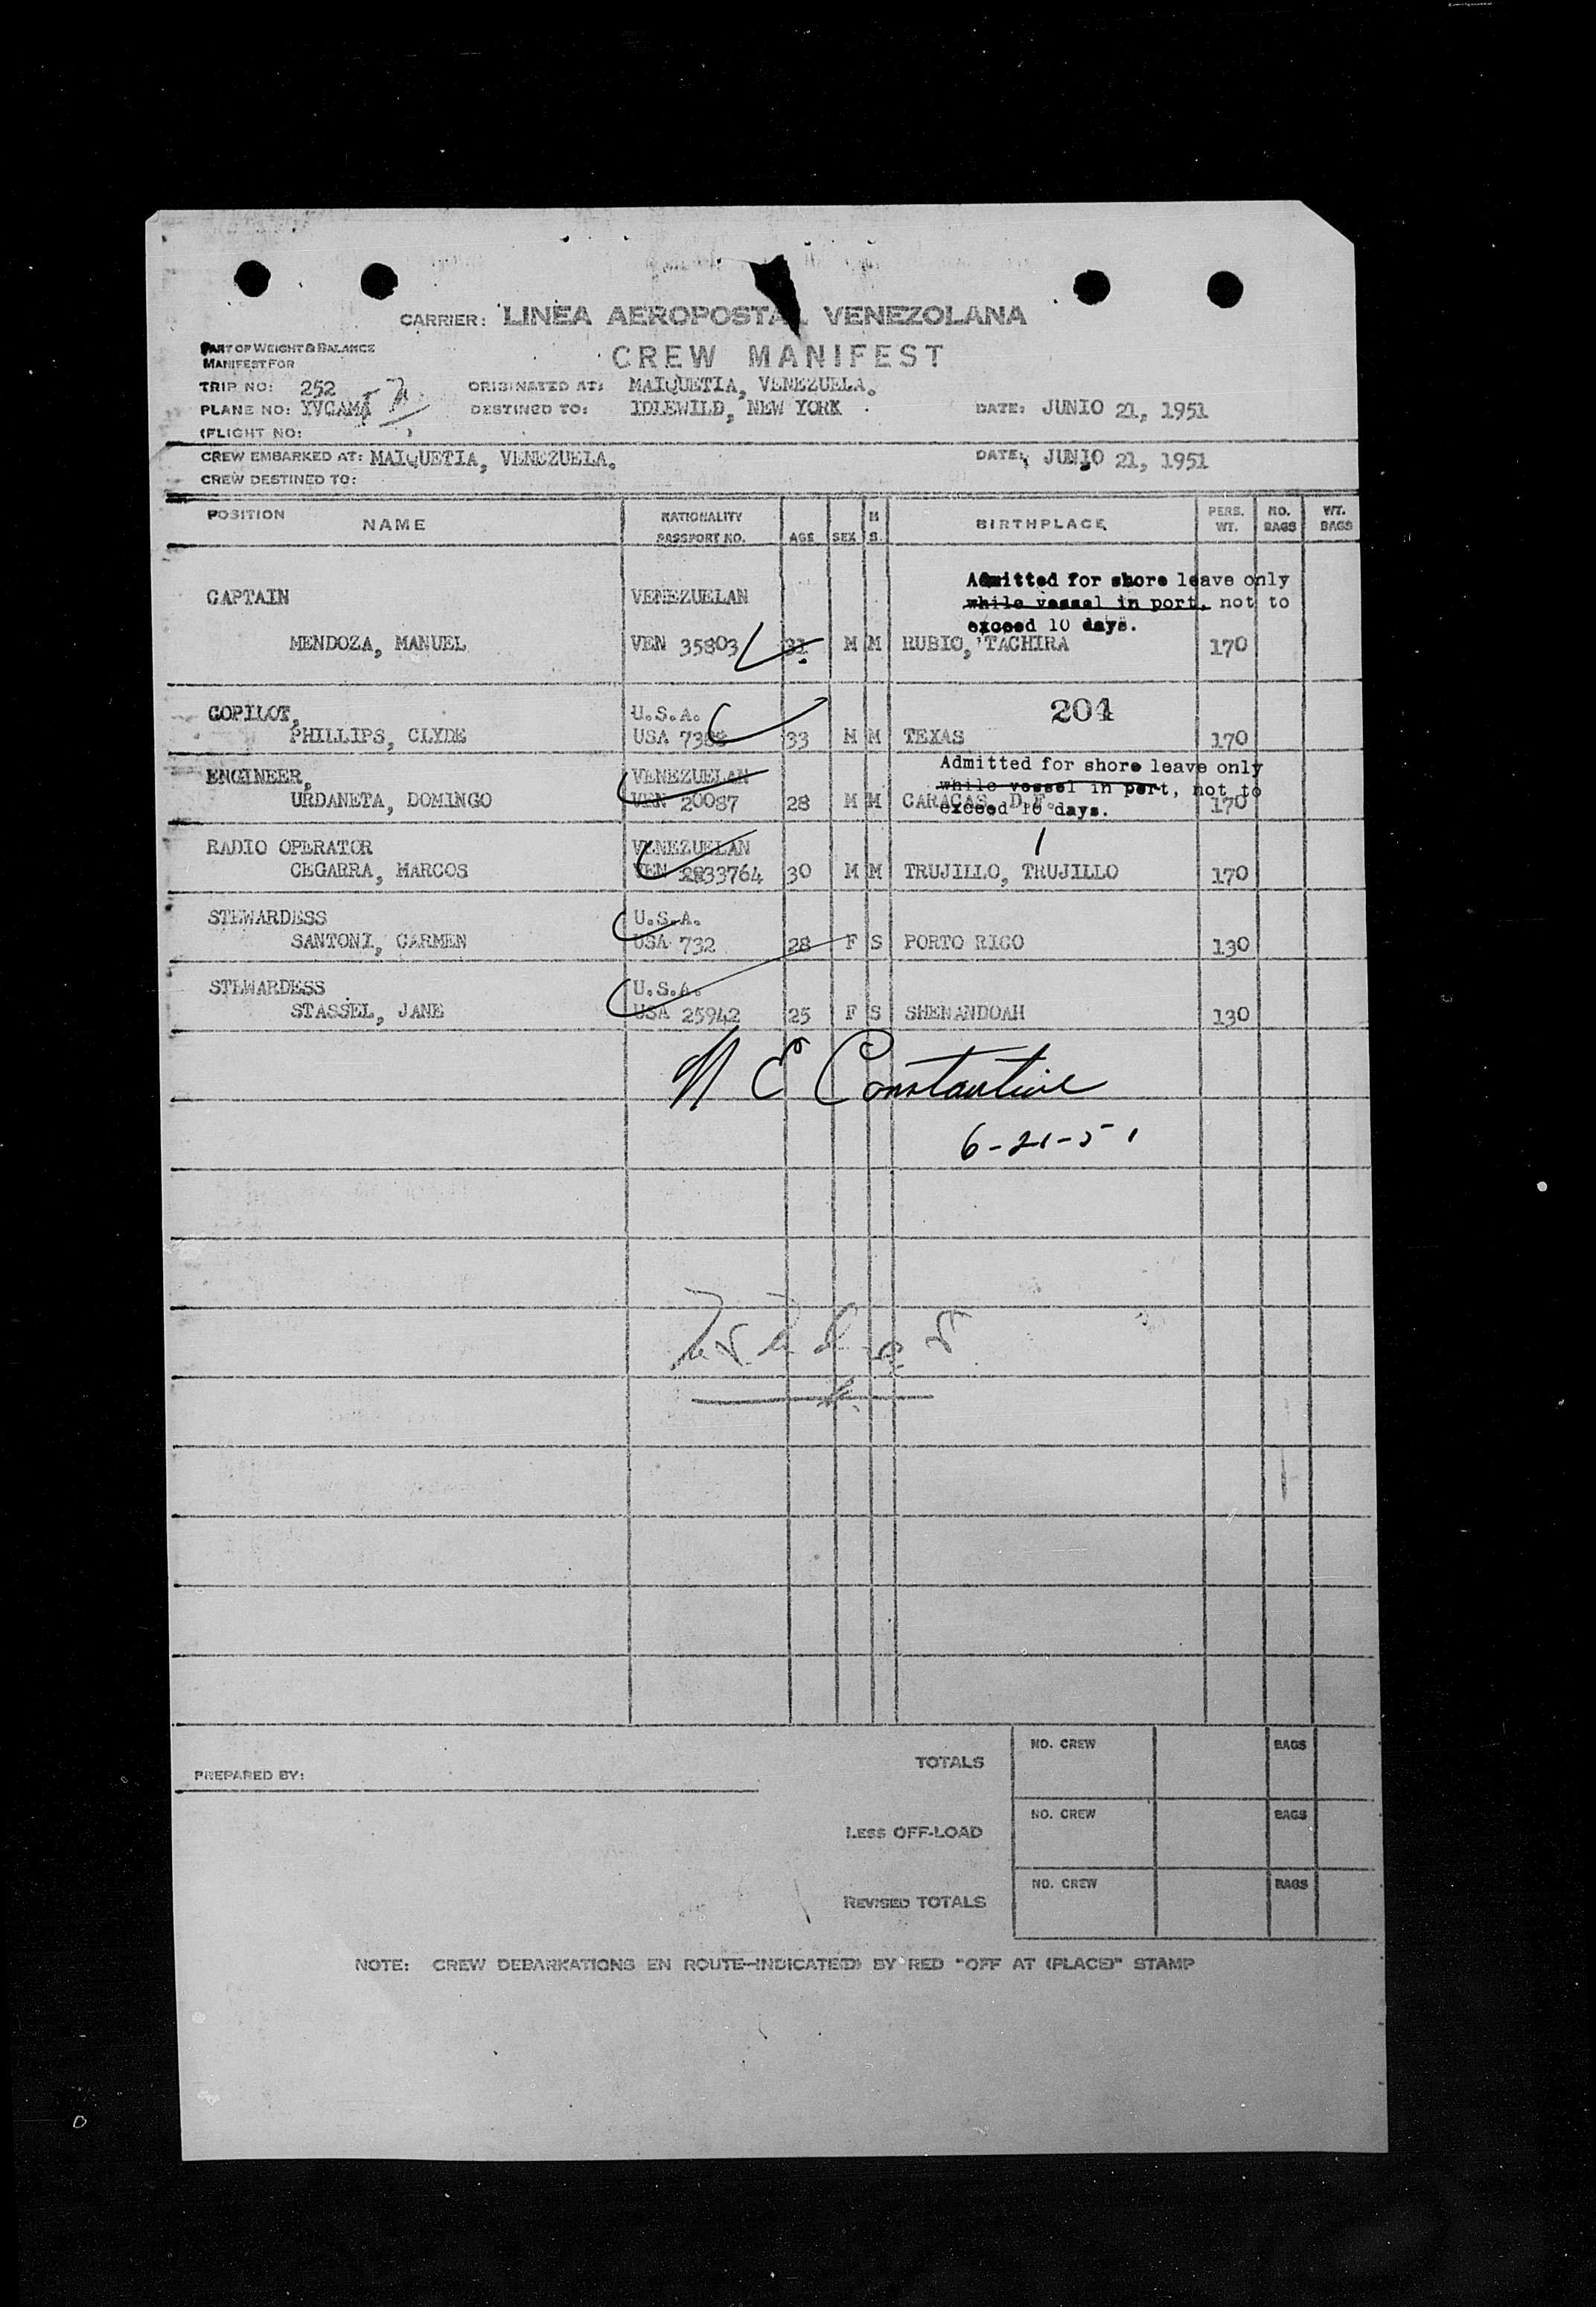 CARRIER: LINEA AEROPOSTAL VENEZOLANA
PART OF WEIGHT & BALANCE
MANIFEST FOR
CREW MANIFEST
TRIP NO: 252 ORIGINATED AT: MAIQUETIA, VENEZUELA.
PLANE NO: YVCAMA DESTINED TO: IDLEWILD, NEW YORK DATE: JUNIO 21, 1951
(FLIGHT NO: )
CREW EMBARKED AT: MAIQUETIA, VENEZUELA. DATE: JUNIO 21, 1951
CREW DESTINED TO:
POSITION NAME NATIONALITY PASSPORT NO. AGE SEX M S. BIRTHPLACE PERS. WT. NO. BAGS WT. BAGS
Admitted for shore leave only
while vessel in port, not to
exceed 10 days.
CAPTAIN VENEZUELAN
MENDOZA, MANUEL VEN 35803 31 M M RUBIO, TACHIRA 170
204
COPILOT, U.S.A.
PHILLIPS, CLYDE USA 33 M M TEXAS 170
Admitted for shore leave only
while vessel in port, not to
exceed 10 days.
ENGINEER, VENEZUELAN
URDANETA, DOMINGO VEN 20087 28 M M CARACAS, D.F. 170
1
RADIO OPERATOR VENEZUELAN
CEGARRA, MARCOS VEN 2833764 30 M M TRUJILLO, TRUJILLO 170
STEWARDESS U.S.A.
SANTONI, CARMEN USA 732 28 F S PORTO RICO 130
STEWARDESS U.S.A.
STASSEL, JANE USA 25942 25 F S SHENANDOAH 130
N E Constantine
6-21-51
PREPARED BY:
TOTALS NO. CREW BAGS
LESS OFF-LOAD NO. CREW BAGS
REVISED TOTALS NO. CREW BAGS
NOTE: CREW DEBARKATIONS EN ROUTE-INDICATE(D) BY RED "OFF AT (PLACE)" STAMP